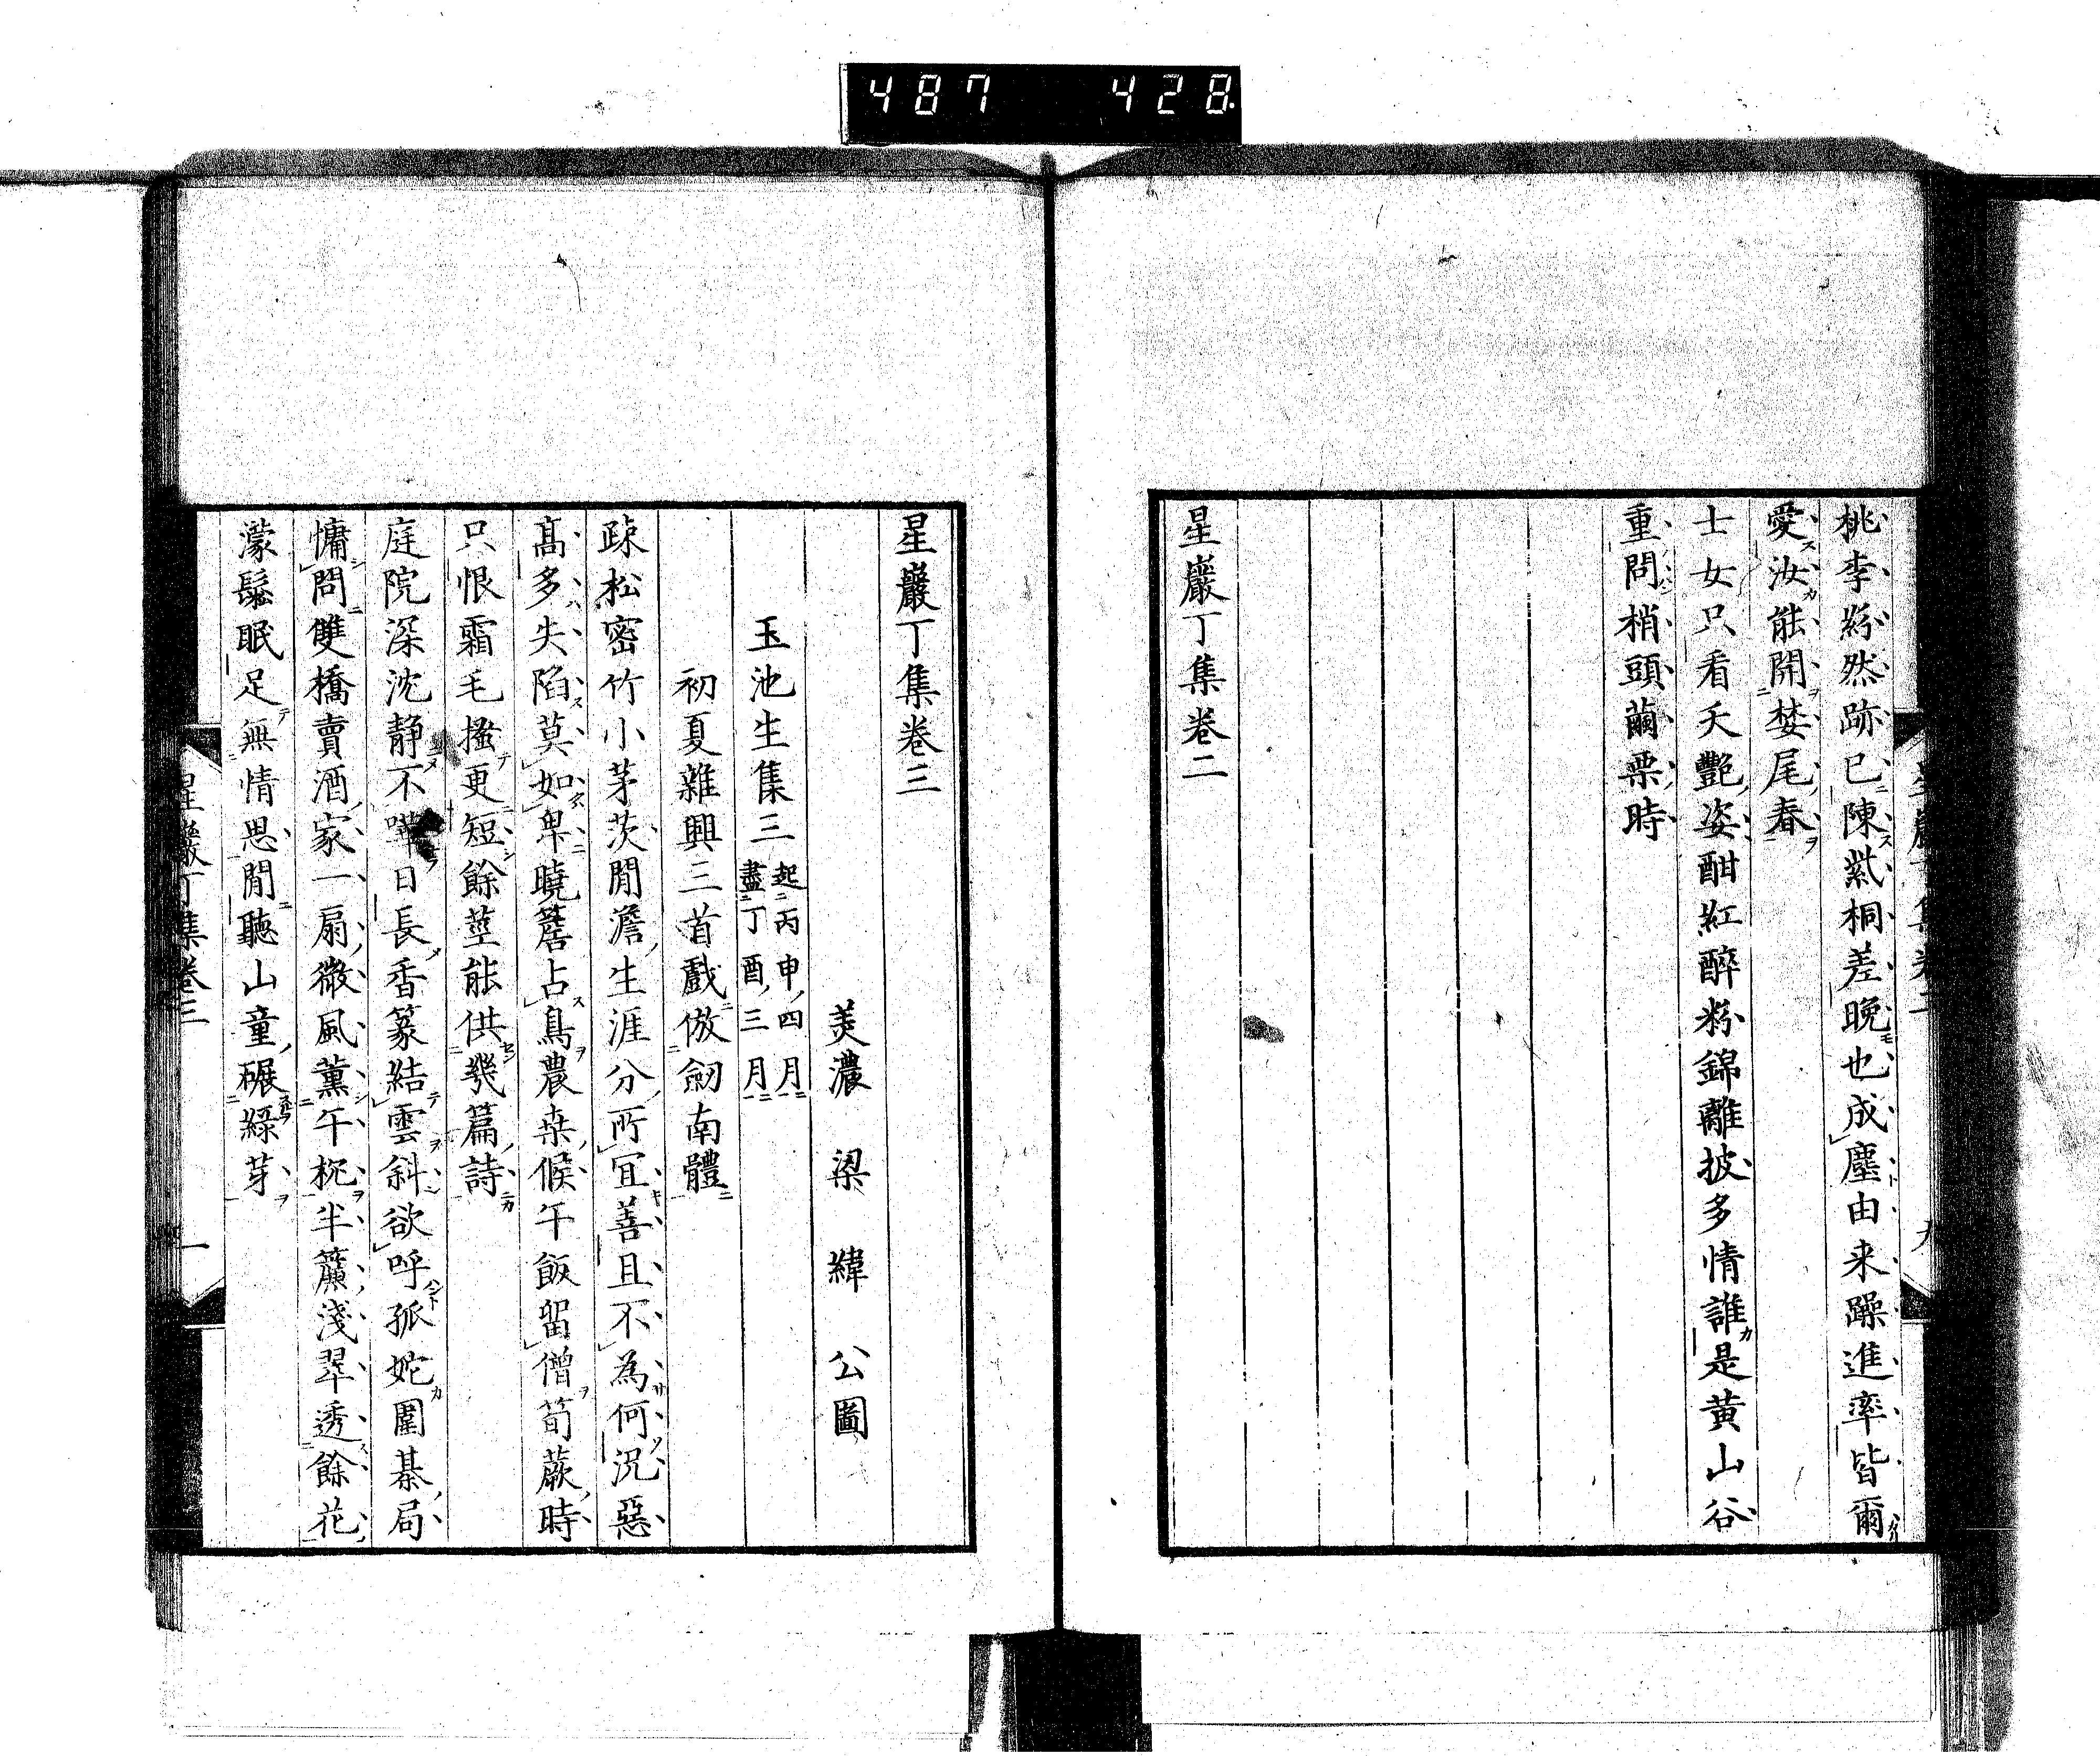 487 428
桃李紛然跡已陳紫桐差晩也成塵由来躁進率皆爾
愛汝能開婪尾春
士女只看夭艷姿酣紅醉粉錦離披多情誰是黄山谷
重問梢頭繭栗時
星巖丁集卷二
星巖丁集卷三
美濃 梁 緯 公圖
玉池生集三 起丙申四月 盡丁酉三月
初夏雜興三首戲倣劒南體
踈松密竹小茅茨閒澹生涯分所宜善且不為何况惡
髙多失陷莫如卑曉簷占鳥農桒候午飯留僧筍蕨時
只恨霜毛搔更短餘莖能供幾篇詩
庭院深沈静不嘩日長香篆結雲斜欲呼孤妮圍棊局
慵問雙橋賣酒家一扇微風薫午枕半簾淺翠透餘花
濛鬆眠足無情思閒聽山童碾緑芽
星巖丁集卷三 一